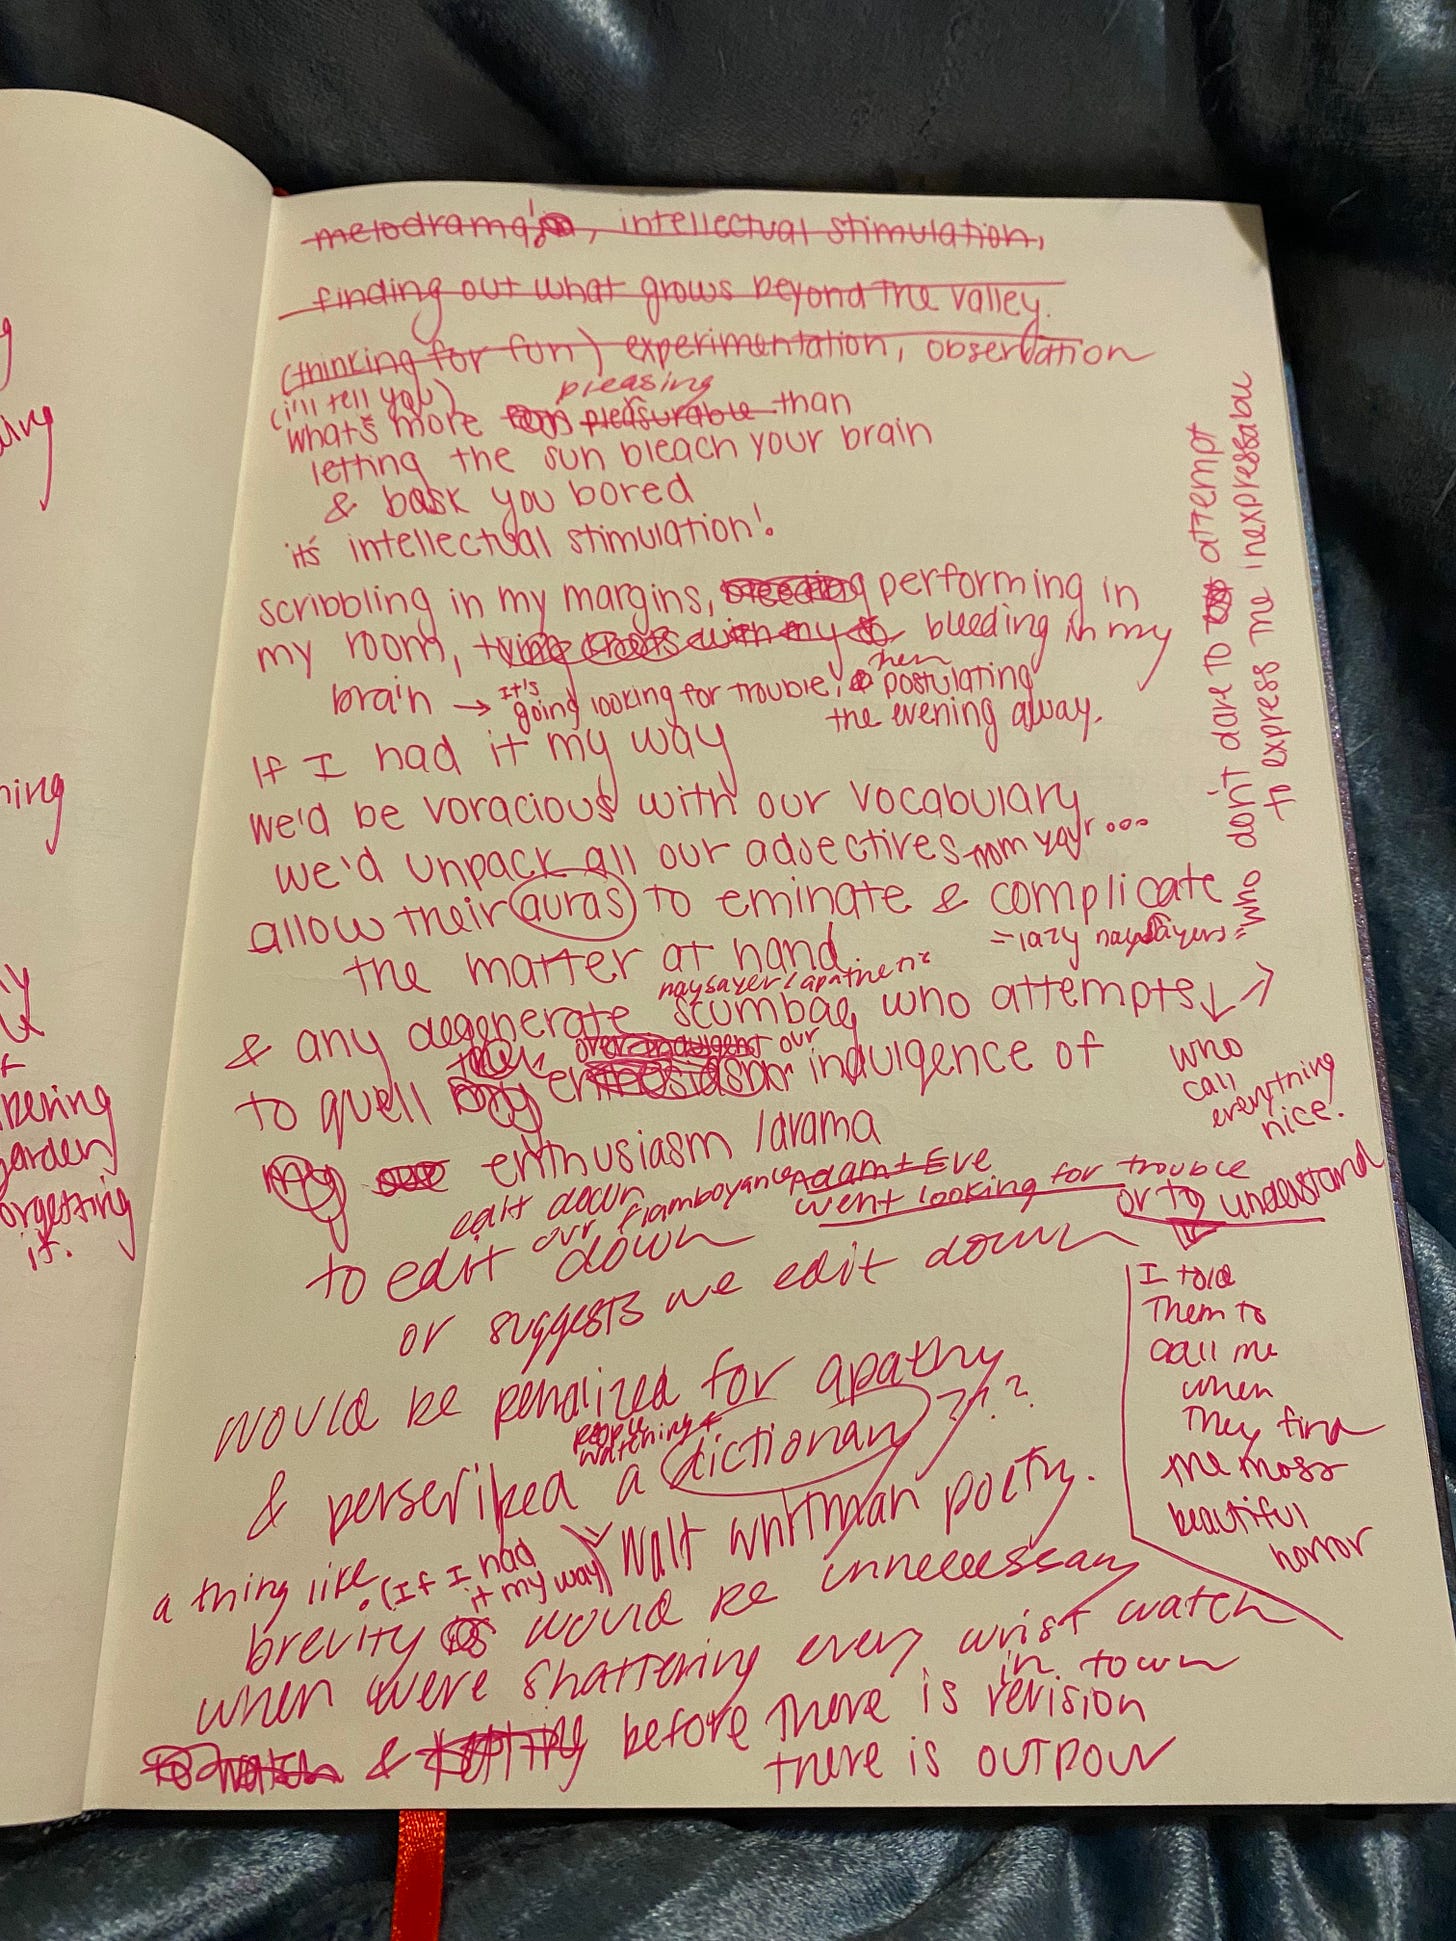 melodrama!, intellectual stimulation,
finding out what grows beyond the valley.
(thinking for fun) experimentation, observation
(i'll tell you) pleasing
what's more pleasurable than
letting the sun bleach your brain
& bask you bored
it's intellectual stimulation!
scribbling in my margins, bleeding performing in
my room, bleeding in my
brain → it's going looking for trouble, then postulating
the evening away.
If I had it my way
we'd be voracious with our vocabulary
we'd unpack all our adjectives
allow their auras to eminate & complicate
the matter at hand
= lazy naysayers =
who don't dare to attempt
to express the inexpressable
naysayer / apathetic
& any degenerate scumbag who attempts
to quell indulgence of
over indulgent our
who
call
everything
nice!
my enthusiasm / drama
edit down
our flamboyance
Adam + Eve
went looking for trouble
or to understand
to edit down
or suggests we edit down
I told
them to
call me
when
they find
the moss
beautiful
horror
would be penalized for apathy
people
watching +
& perscribed a dictionary ??
Walt Whitman poetry.
a thing like (If I had
it my way)
brevity would be unneccessary
when were shattering every wrist watch
in town
& before there is revision
there is outpour
ning
garden
orgetting
it.